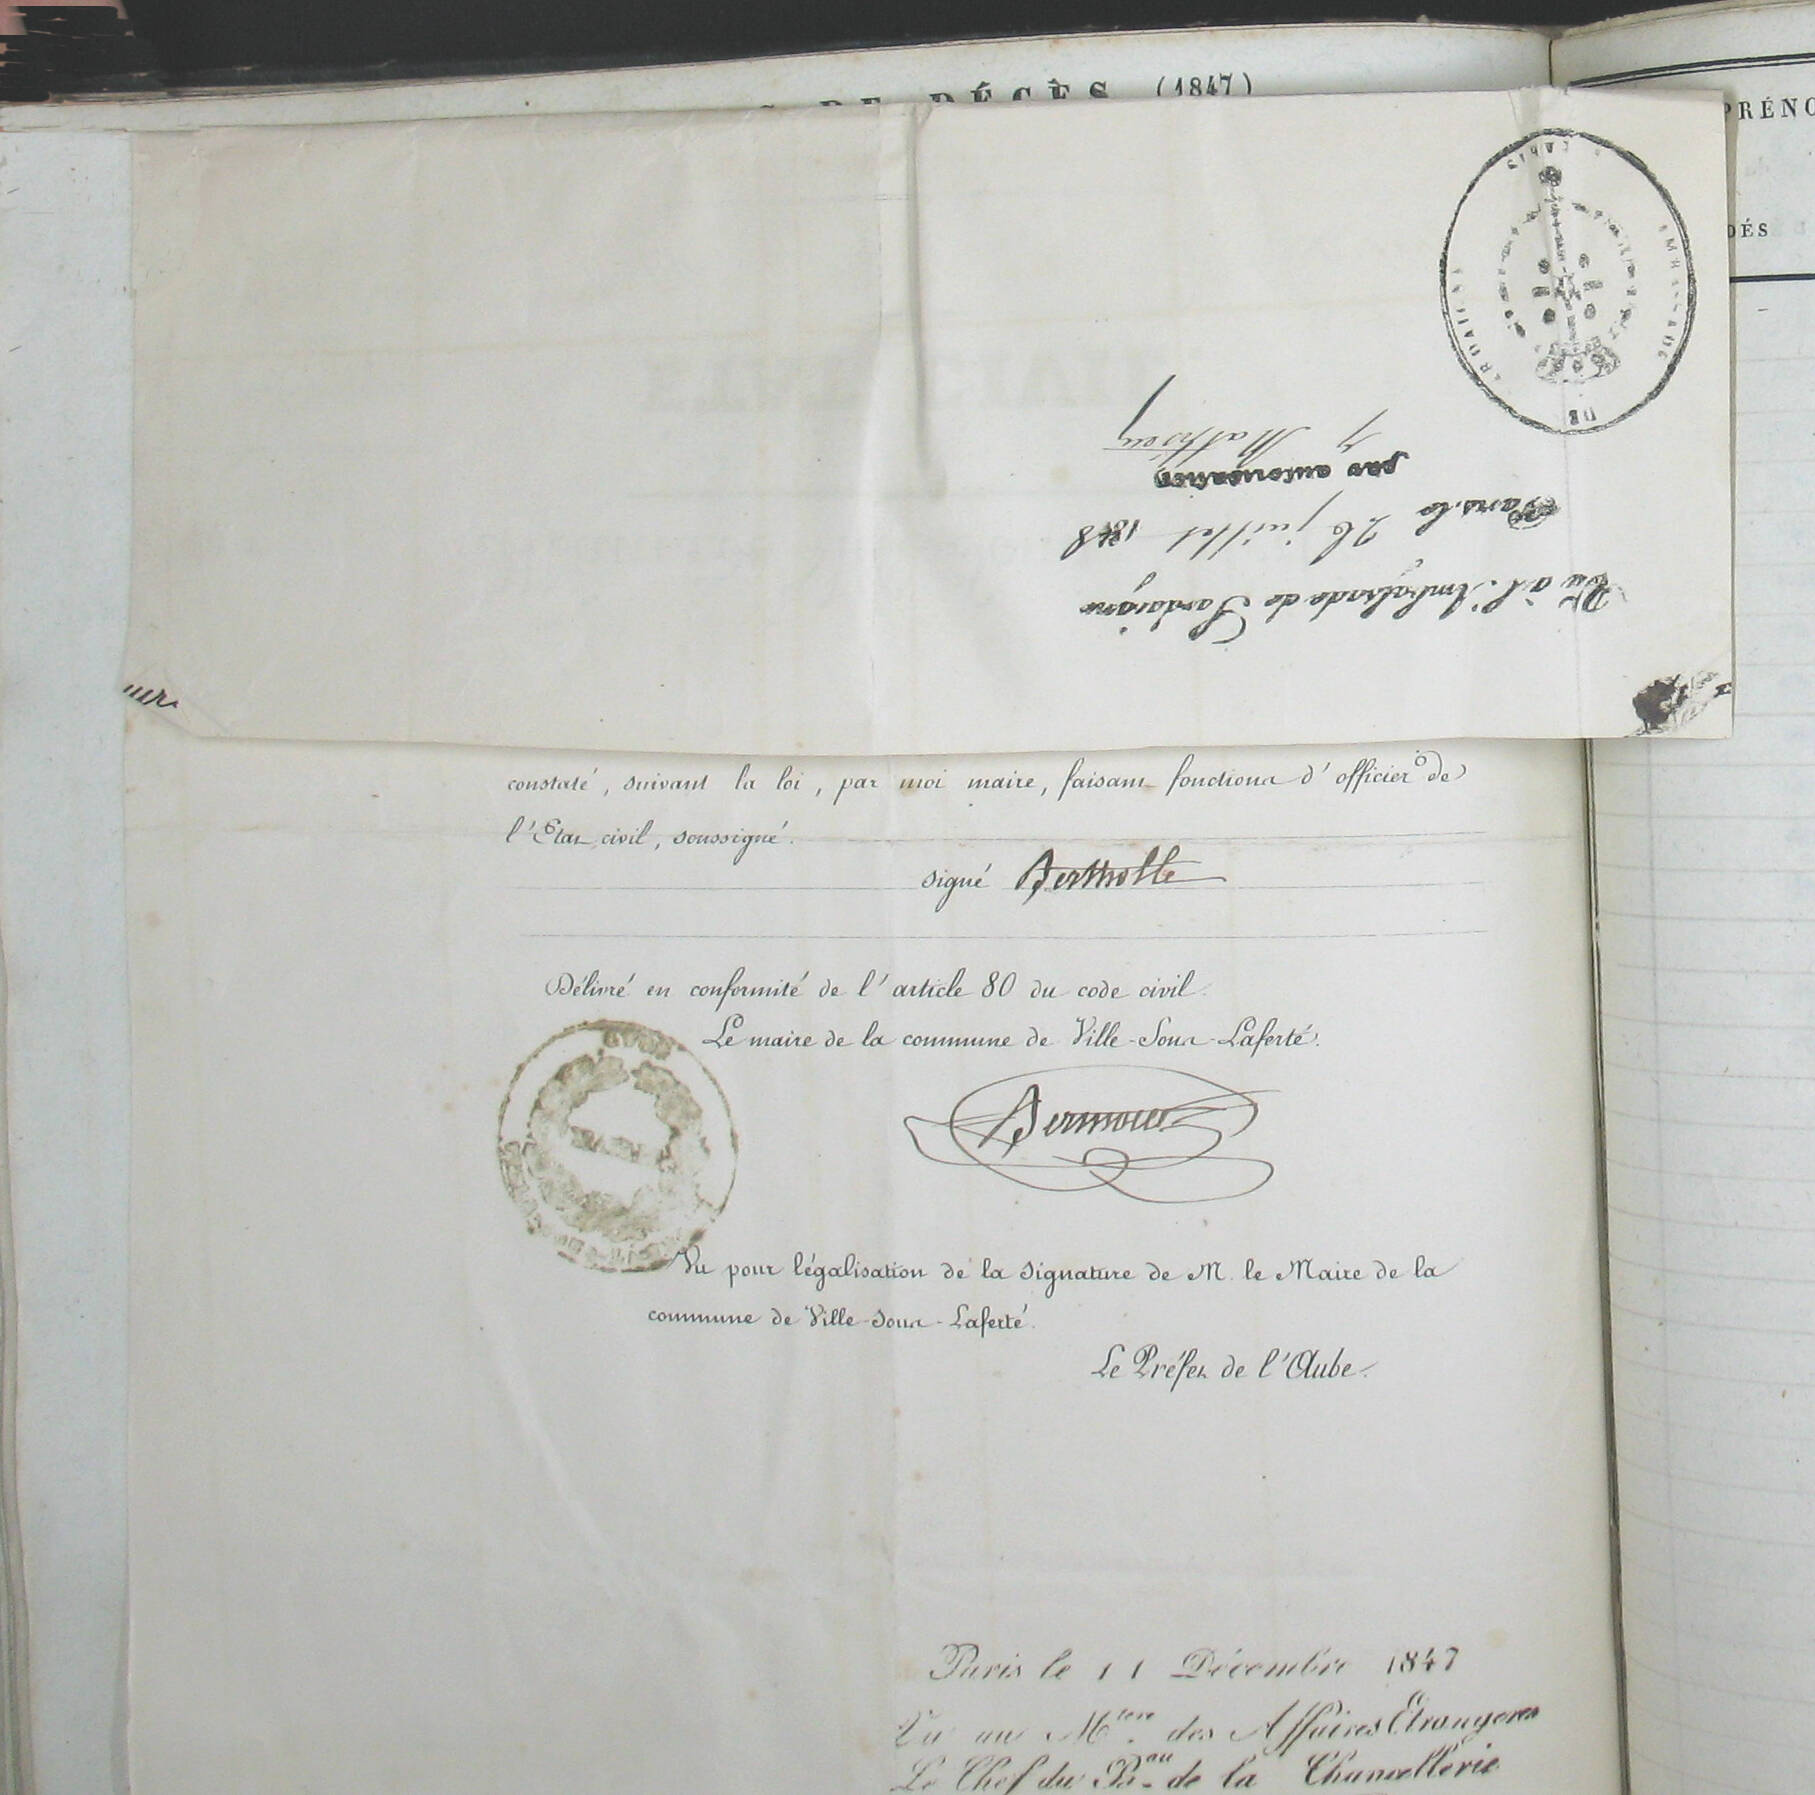 DE DÉCÈS (1847)
PRÉNO
DÉS
EMBASSADE DE SARDAIGNE A PARIS
Vu à l'Ambassade de Sardaigne
Paris, le 26 juillet 1848
par autorisation
Mathieu
constaté, suivant la loi, par moi maire, faisant fonctions d'officier de
l'Etat civil, soussigné.
signé Bertholle
Délivré en conformité de l'article 80 du code civil.
Le maire de la commune de Ville-Sous-Laferté.
Vu pour légalisation de la signature de M. le Maire de la
commune de Ville-sous-Laferté.
Le Préfet de l'Aube.
Paris le 11 Décembre 1847
Vu au Mtère des Affaires Etrangères
Le Chef du Bau de la Chancellerie